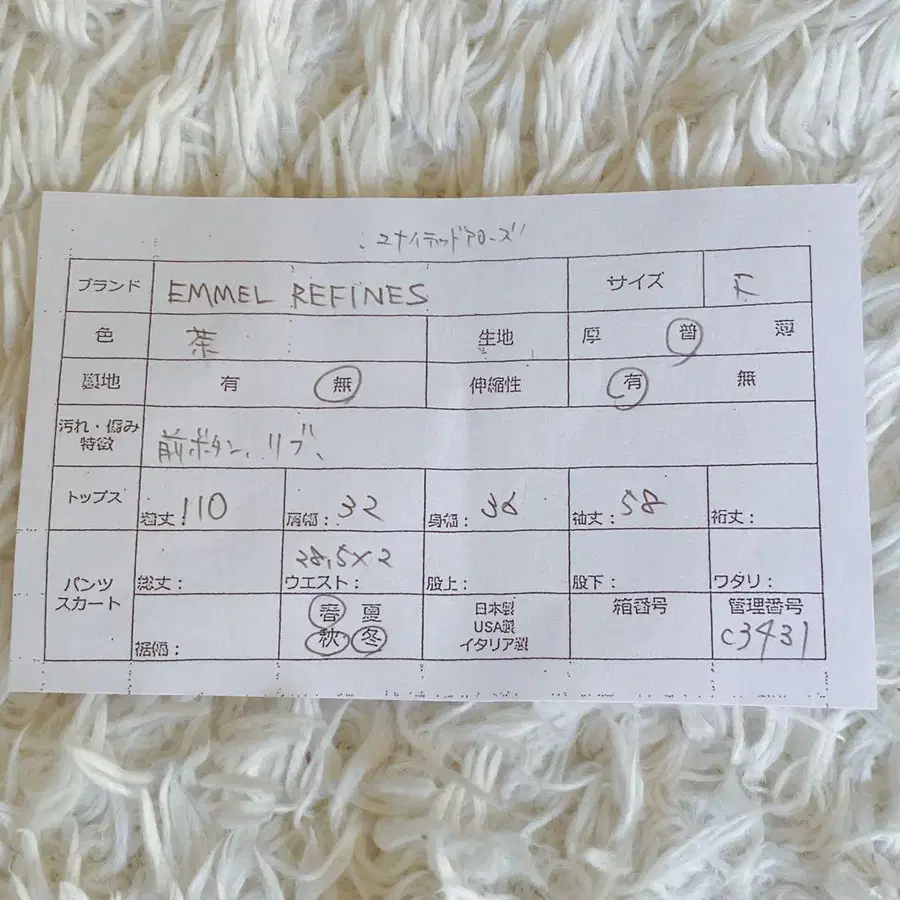 ユナイテッドアローズ
ブランド EMMEL REFINES サイズ F
色 茶 生地 厚 普 薄
裏地 有 無 伸縮性 有 無
汚れ・傷み
特徴 前ボタン、リブ、
トップス 着丈:110 肩幅:32 身幅:36 袖丈:58 裄丈:
パンツ
スカート 総丈: 28.5×2
ウエスト: 股上: 股下: ワタリ:
裾幅: 春 夏
秋 冬 日本製
USA製
イタリア製 箱番号 管理番号
C3431